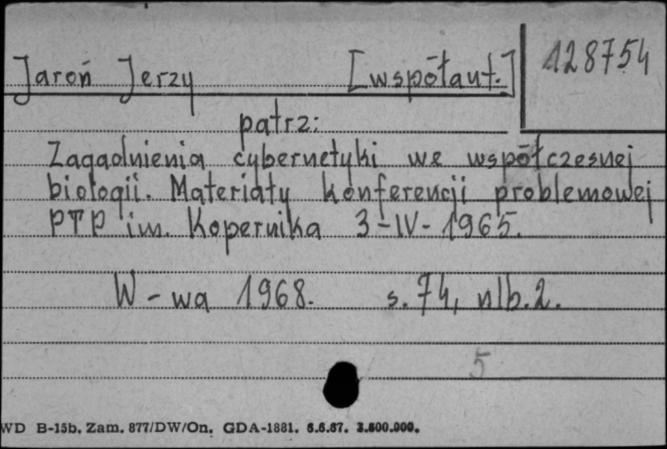 Jaroń Jerzy [współaut.] 128754
patrz:
Zagadnienia cybernetyki we współczesnej
biologii. Materiały konferencji problemowej
PTP im. Kopernika 3-IV-1965.
W-wa 1968. s. 74, nlb. 2.
5
WD B-15b. Zam. 877/DW/On. GDA-1881. 6.6.67. 3.500.000.